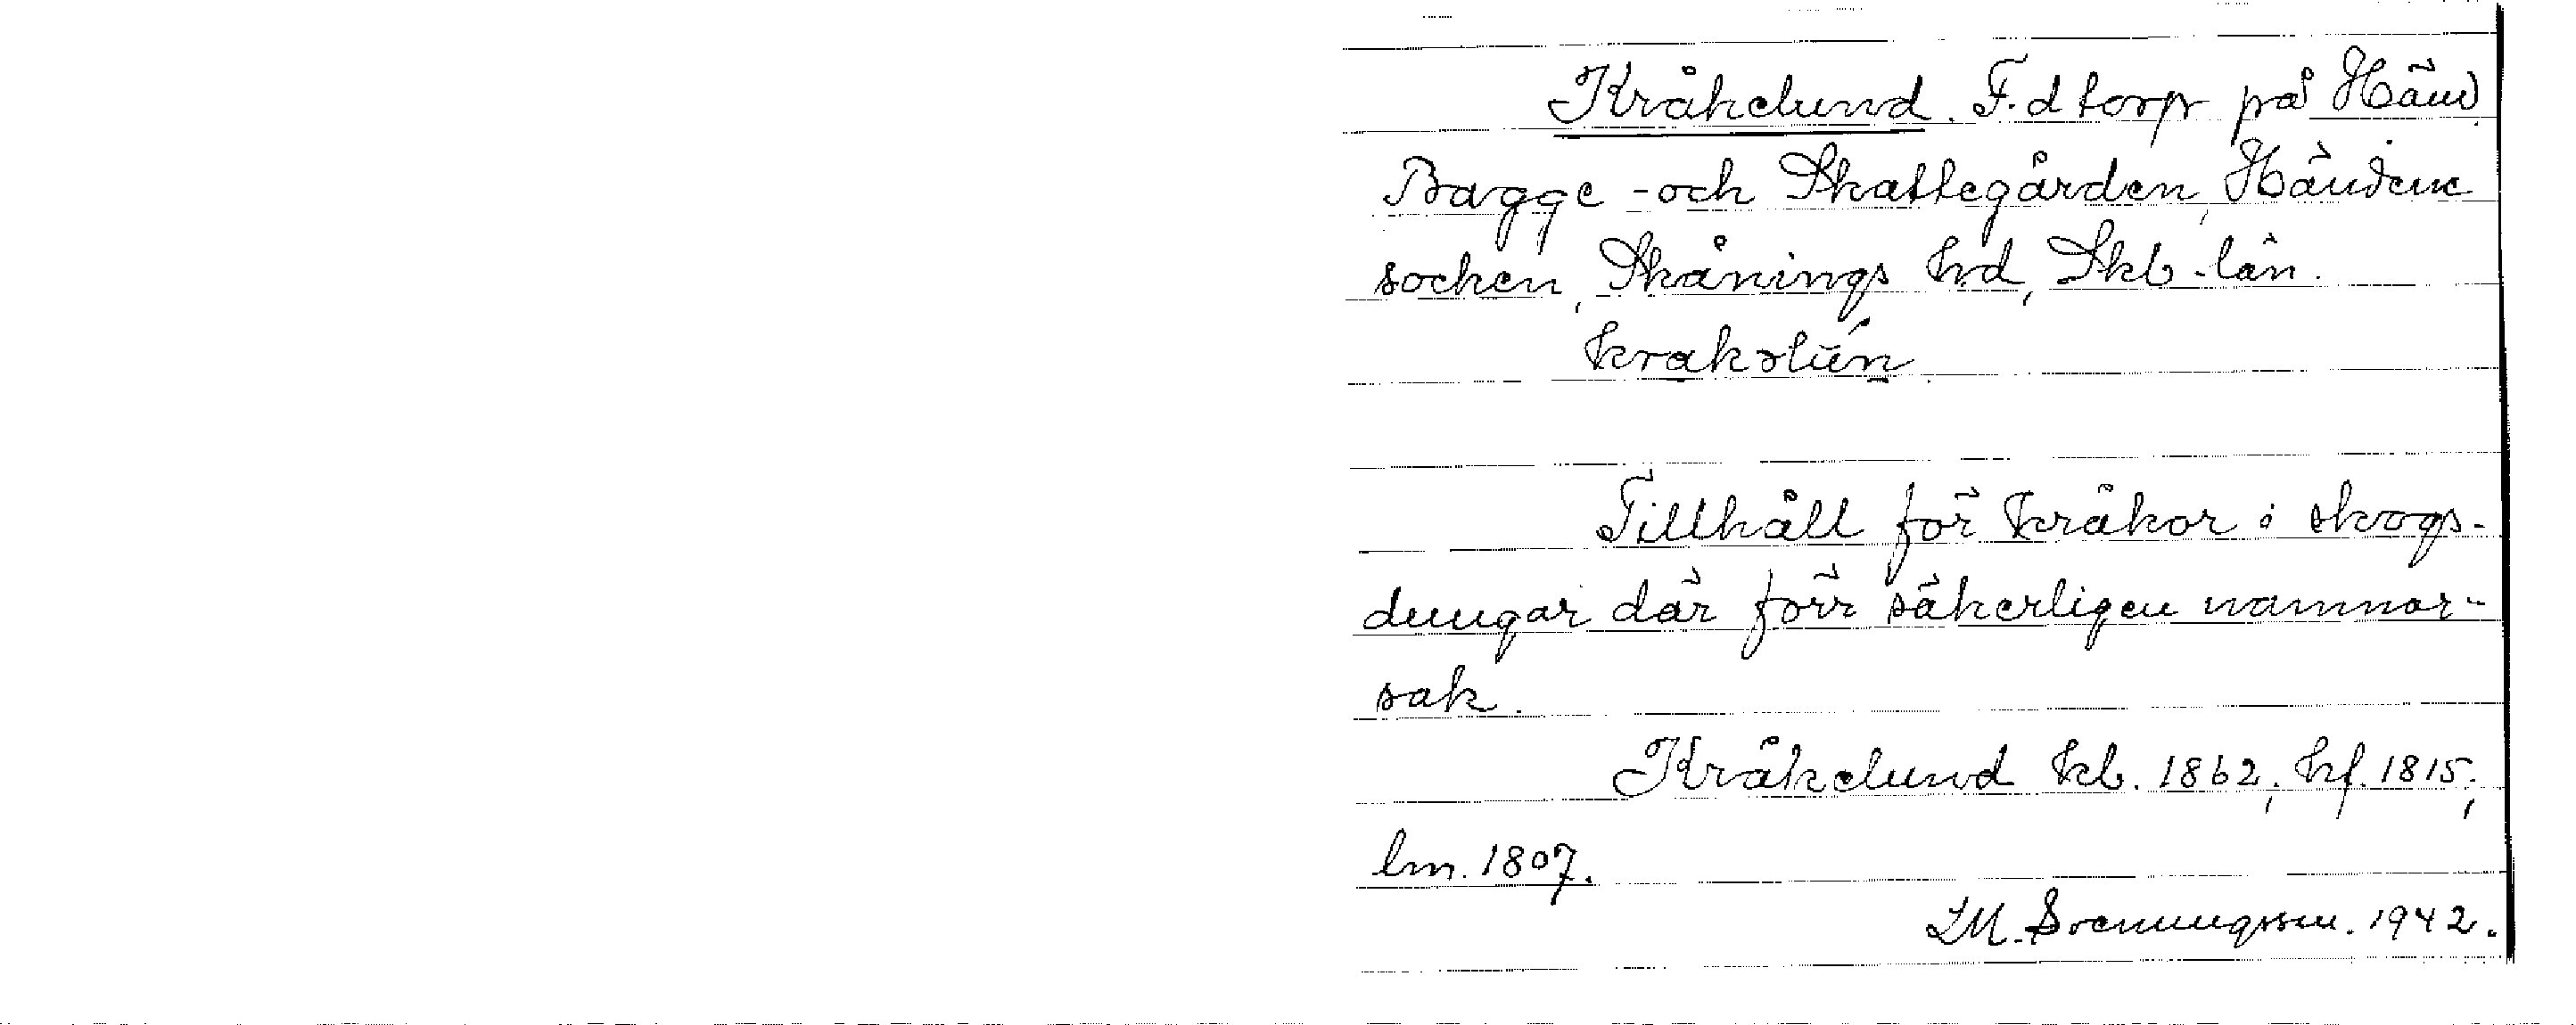 Kråkelund. F.d torp på Händ.
Bagge- och Skattegården, Händene
socken, Skånings hd, Skb. län.
krakəlún
Tillhåll för kråkor i skogs-
dungar där förr säkerligen namnor-
sak.
Kråkelund kb. 1862; hf. 1815;
lm. 1807.
LM. Svenungsson. 1942.